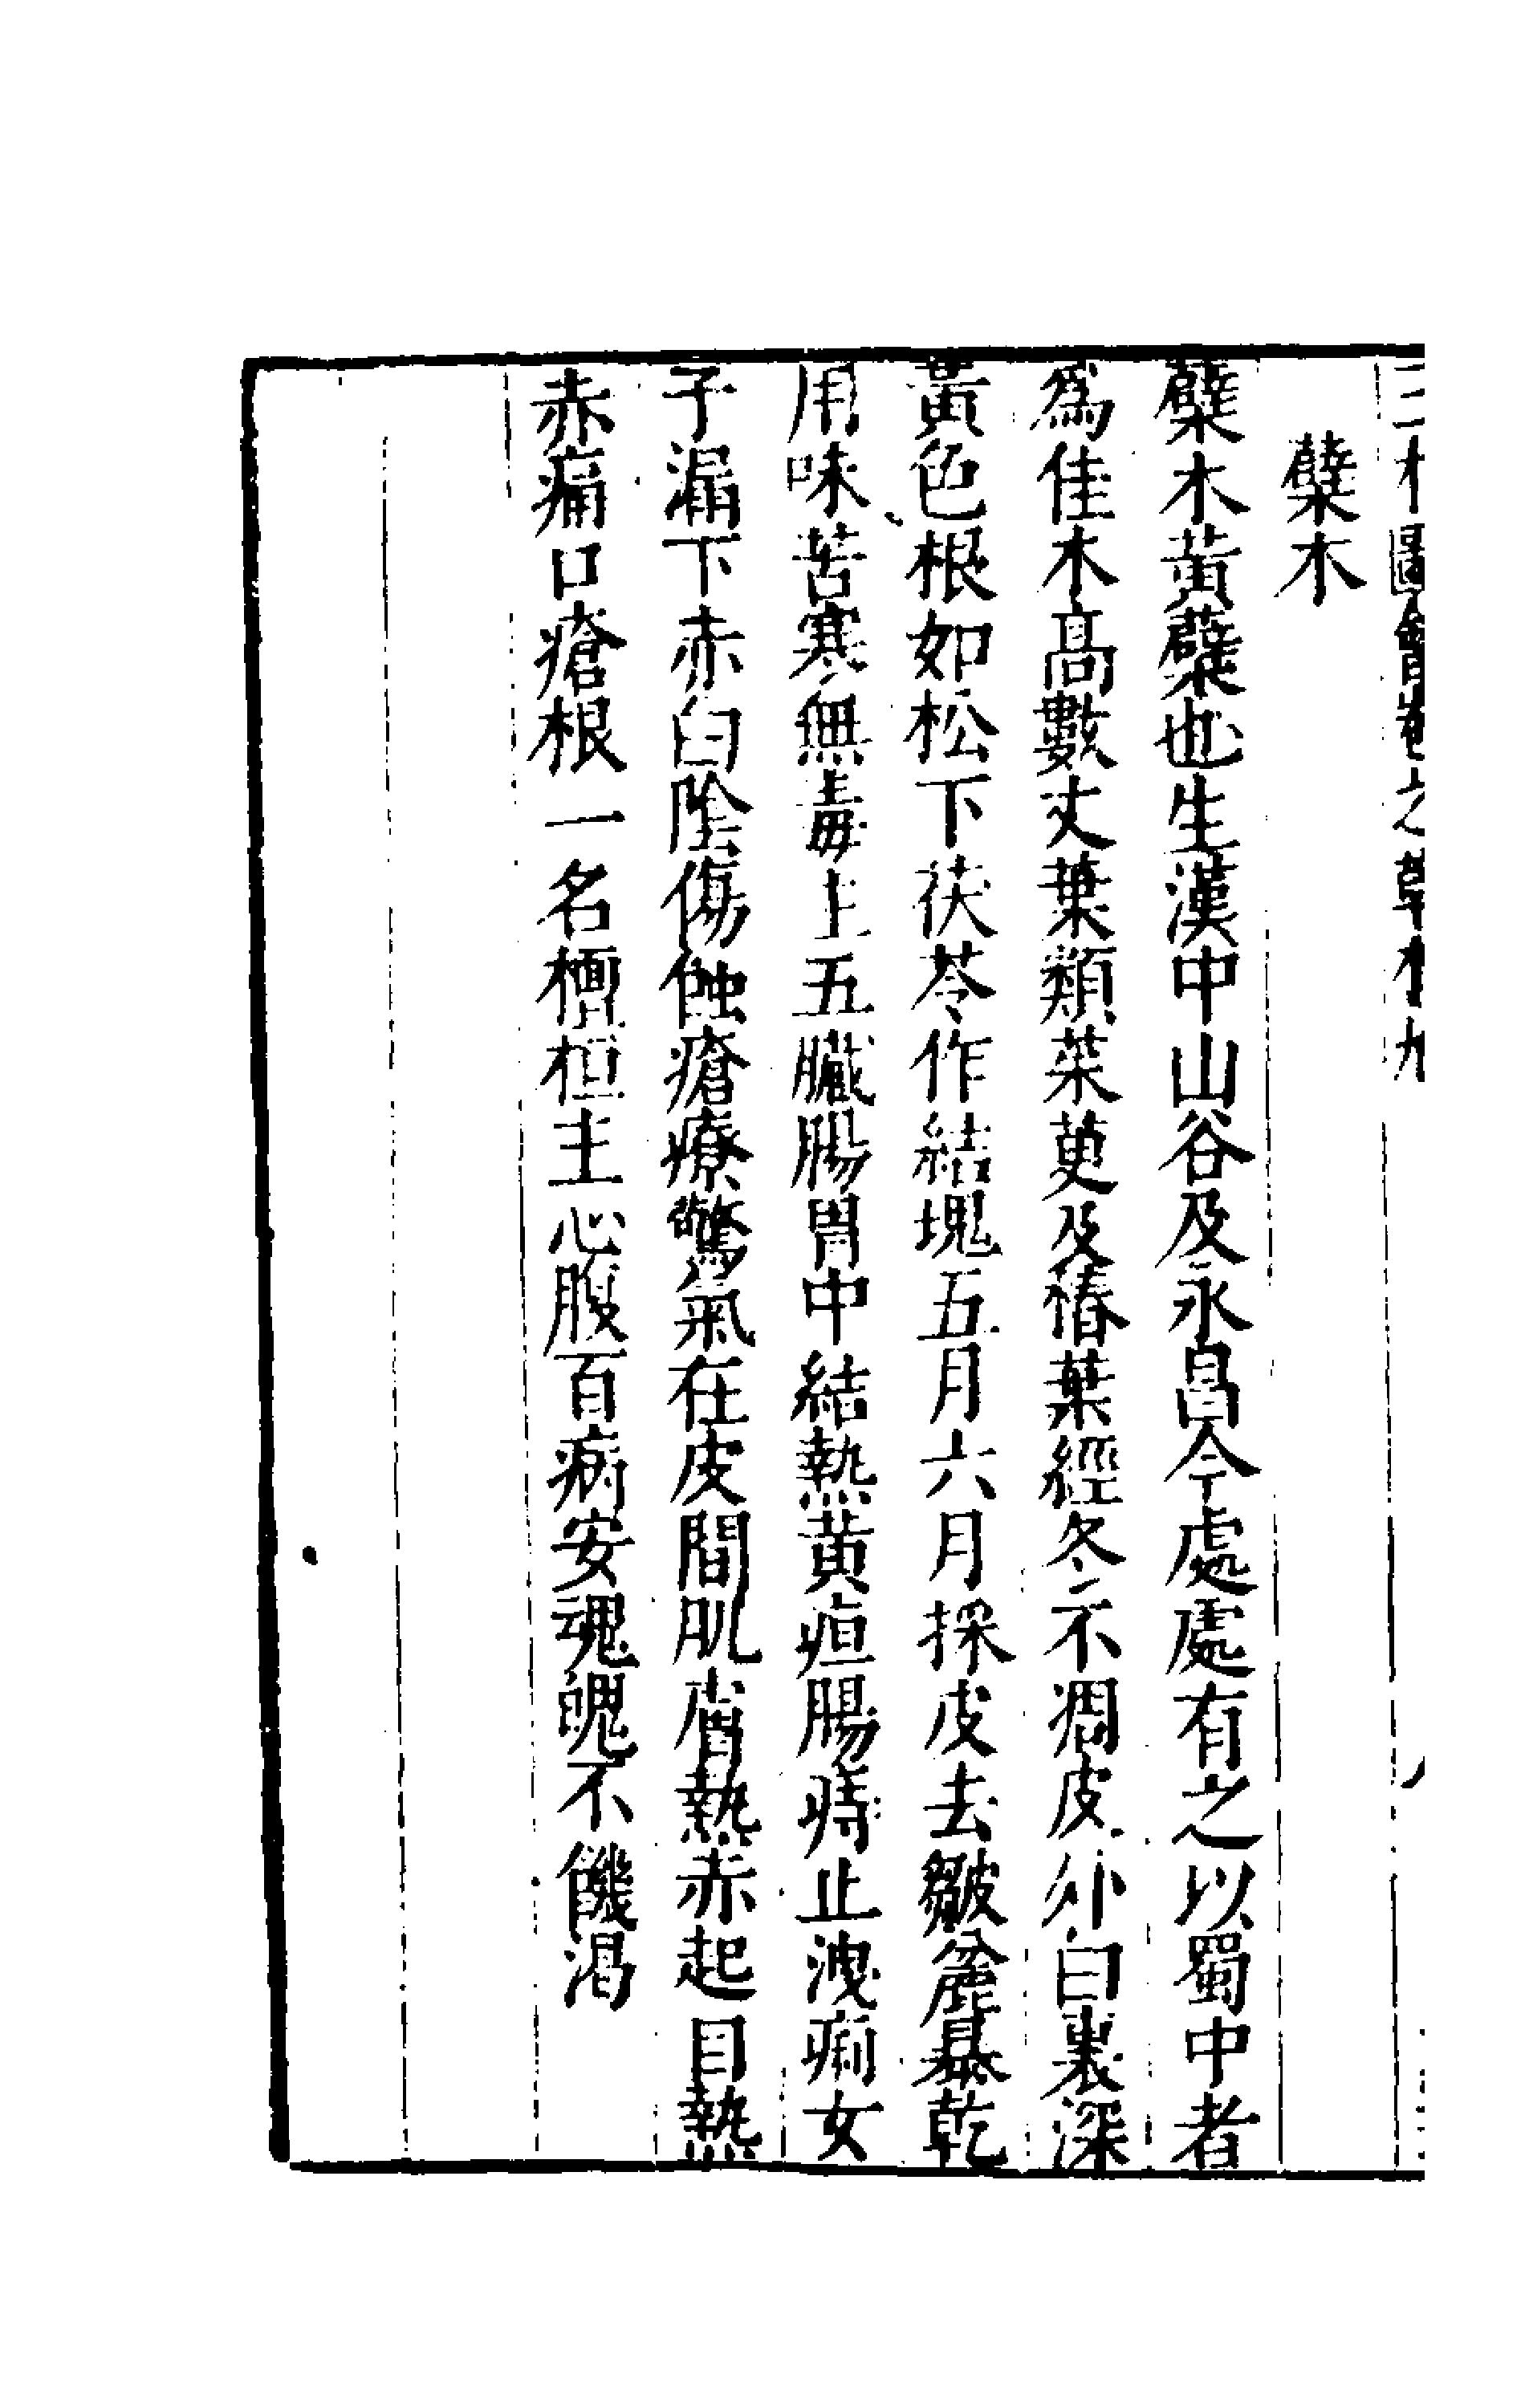 三才圖會卷之草木九
蘗木
蘗木黃蘗也生漢中山谷及永昌今處處有之以蜀中者
爲佳木高數丈葉類茱萸及椿葉經冬不凋皮外白裏深
黃色根如松下茯苓作結塊五月六月採皮去皺麄暴乾
用味苦寒無毒主五臟腸胃中結熱黃疸腸痔止洩痢女
子漏下赤白陰傷蝕瘡療驚氣在皮間肌膚熱赤起目熱
赤痛口瘡根一名檀桓主心腹百病安魂魄不饑渴